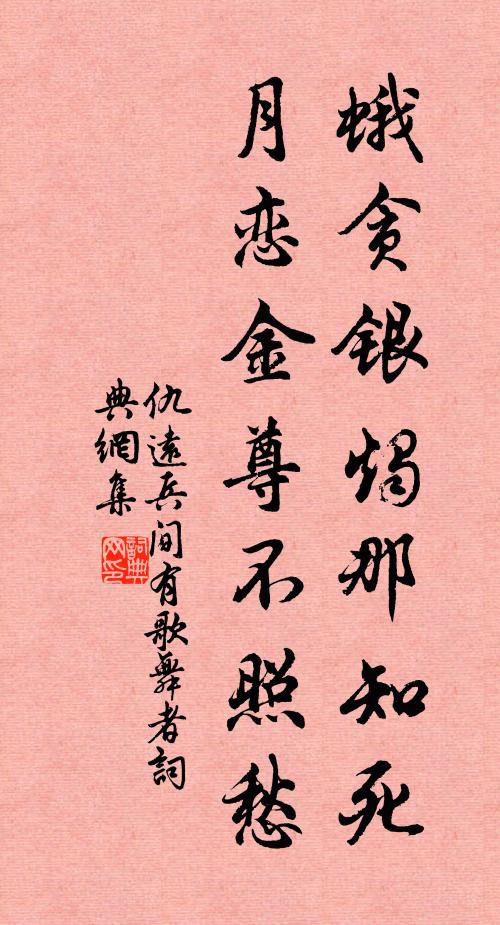 蛾贪银烛那知死
月恋金尊不照愁
仇遠兵间有歌舞者詞
典網集
詞典
网印